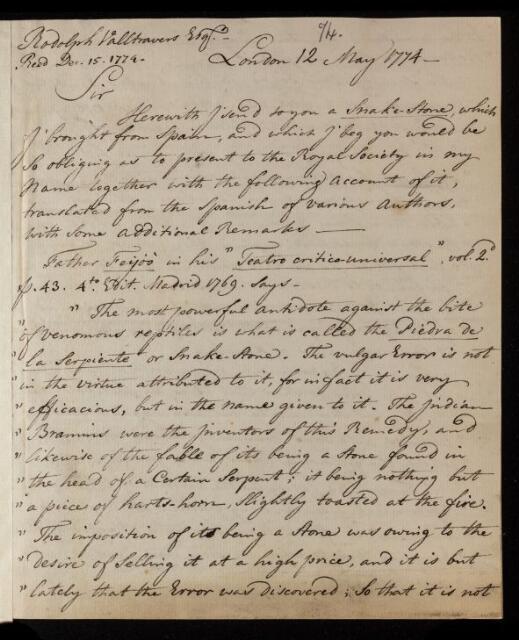 Rodolph Valltravers Esqr.
9/4.
Read Dec. 15. 1774.
London 12 May 1774 —
Sir
Herewith I send to you a Snake-Stone, which
I brought from Spain, and which I beg you would be
So obliging as to present to the Royal Society in my
Name together with the following Account of it,
translated from the Spanish of various Authors,
with Some additional Remarks —
Father Feijoò in his " Teatro critico-universal ", vol. 2.d
p. 43. 4.to Edit. Madrid 1769. Says —
" The most powerful antidote against the bite
" of venomous reptiles is what is called the Piedra de
" la Serpiente or Snake-Stone. The vulgar Error is not
" in the virtue attributed to it, for in fact it is very
" efficacious, but in the name given to it. The Indian
" Bramins were the Inventors of this Remedy, and
" likewise of the fable of its being a Stone found in
" the head of a Certain Serpent; it being nothing but
" a piece of harts-horn, Slightly toasted at the fire.
" The imposition of its being a Stone was owing to the
" desire of Selling it at a high price, and it is but
" lately that the Error was discovered; So that it is not